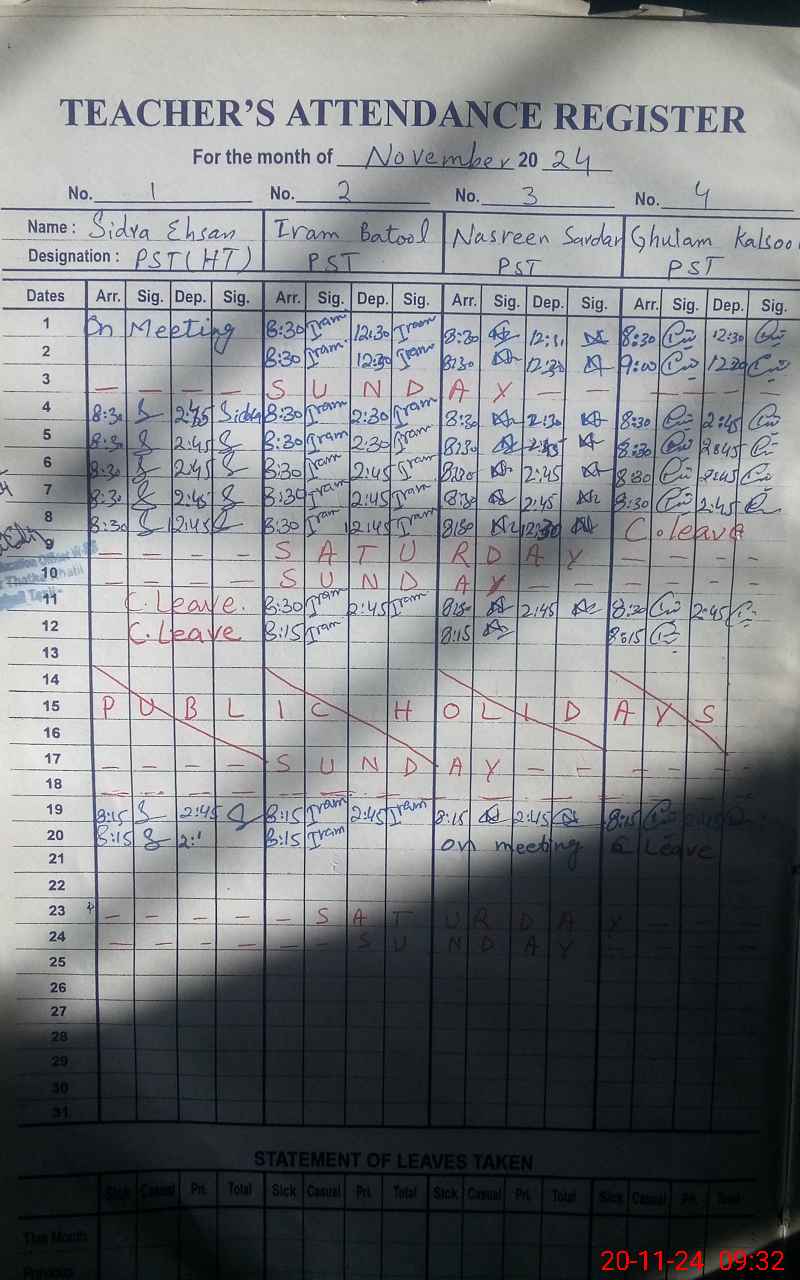 TEACHER'S ATTENDANCE REGISTER
For the month of November 20 24
No. 1 No. 2 No. 3 No. 4
Name : Sidra Ehsan Iram Batool Nasreen Sardar Ghulam Kalsoo
Designation : PST(HT) PST PST PST
Dates Arr. Sig. Dep. Sig. Arr. Sig. Dep. Sig. Arr. Sig. Dep. Sig. Arr. Sig. Dep. Sig.
1 On Meeting 8:30 Iram 12:30 Iram 8:30 8:30 12:30
2 8:30 Iram 12:30 Iram 8:30 12:30 9:00 12:30
3 — — — — S U N D A Y — — — — — —
4 8:30 2:45 Sidra 8:30 Iram 2:30 Iram 8:30 2:30 8:30 2:45
5 8:30 2:45 8:30 Iram 2:30 Iram 8:30 8:30 2:45
6 8:30 2:45 8:30 Iram 2:45 Iram 8:30 2:45 8:30 2:45
7 8:30 2:45 8:30 Iram 2:45 Iram 8:30 2:45 8:30 2:45
8 8:30 12:45 8:30 Iram 12:45 Iram 8:30 12:30 C.leave
9 — — — — S A T U R D A Y — — — —
10 — — — — S U N D A Y — — — — — —
11 C.Leave. 8:30 Iram 2:45 Iram 8:30 2:45 8:30 2:45
12 C.Leave 8:15 Iram 8:15 8:15
13
14
15 P U B L I C H O L I D A Y S
16
17 — — — — S U N D A Y — — — — — —
18
19 8:15 2:45 8:15 Iram 2:45 Iram 8:15 2:45 8:15 2:45
20 8:15 2: 8:15 Iram on meeting Leave
21
22
23 — — — — — S A T U R D A Y — — —
24 — — — — S U N D A Y — — — —
25
26
27
28
29
30
31
STATEMENT OF LEAVES TAKEN
Sick Casual Pri. Total Sick Casual Pri. Total Sick Casual Pri. Total Sick Casual Pri. Total
This Month
Previous
20-11-24 09:32